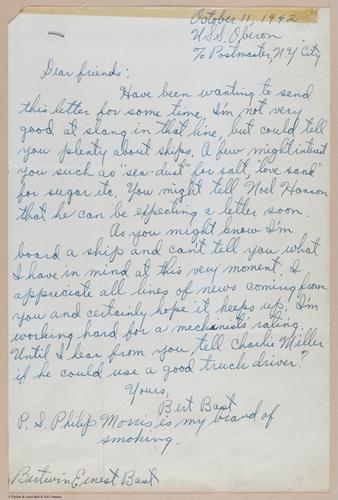 October 11, 1942
U.S.S. Oberon
c/o Postmaster, N.Y. City
Dear friends:
Have been wanting to send
this letter for some time. I'm not very
good at slang in that line, but could tell
you plenty about ships. A few might interest
you such as "sea-dust" for salt, "love sand"
for sugar etc. You might tell Noel Hanson
that he can be expecting a letter soon.
As you might know I'm
board a ship and can't tell you what
I have in mind at this very moment. I
appreciate all lines of news coming from
you and certainly hope it keeps up. I'm
working hard for a mechanists' rating.
Until I hear from you, tell Charlie Miller
if he could use a good truck driver?
Yours,
Bert Bast
P.S. Philip Morris is my brand of
smoking.
Bertwin Ernest Bast